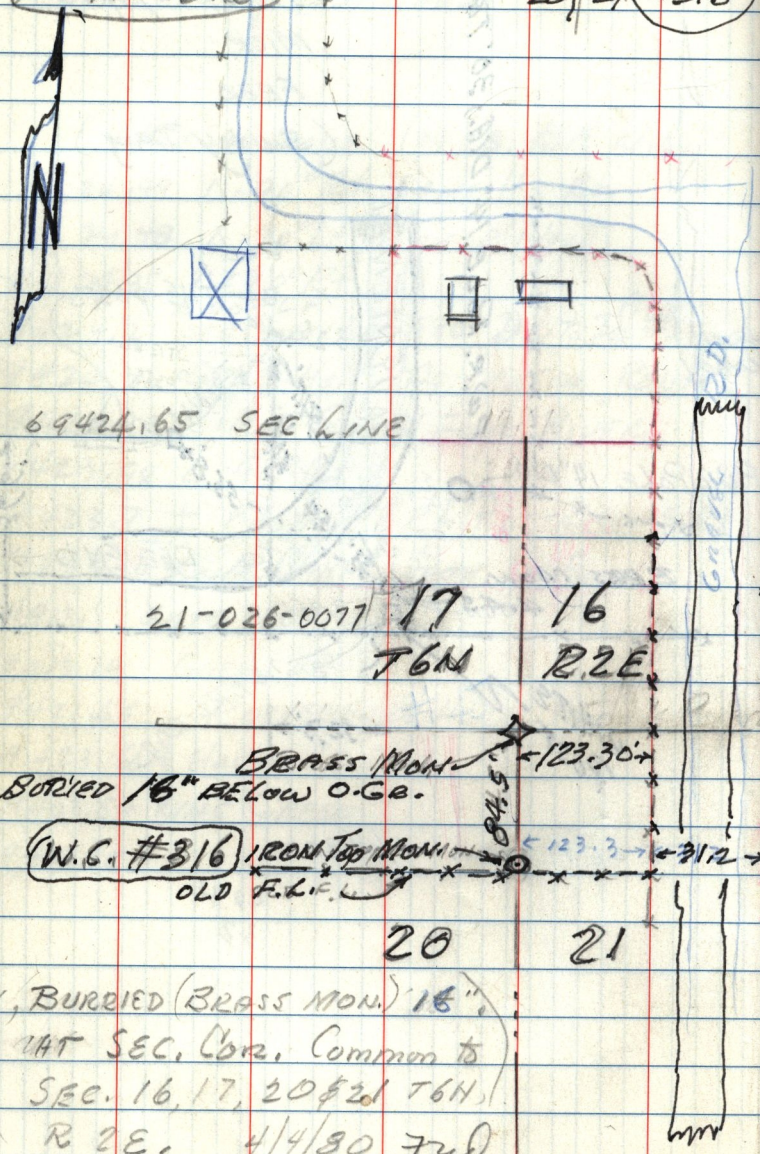 N
69424.65 SEC. LINE
RD.
GRAVEL
21-026-0077 17 16
T6N R.2E
BRASS MON. 123.30'
BURIED 16" BELOW O.GR.
84.5'
W.C. #316 IRON TOP MON. 123.3 31.2
OLD F.L.
20 21
BURRIED (BRASS MON.) 16".
AT SEC. COR. Common to
SEC. 16, 17, 20 & 21 T6N,
R 2E. 4/4/80